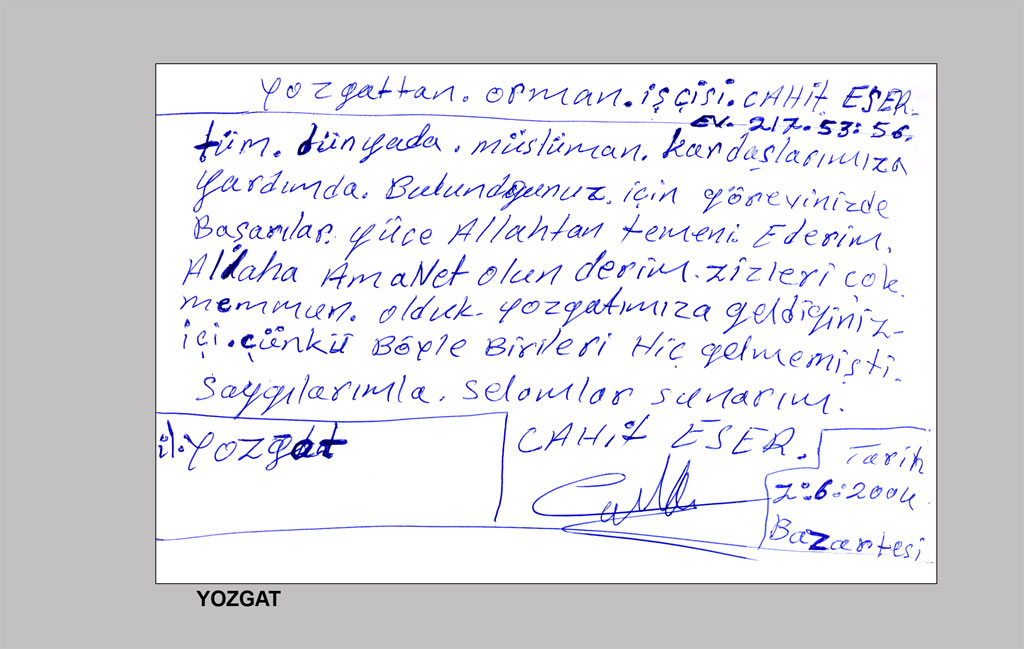 Yozgattan. orman. işçisi. CAHit ESER.
EV. 217. 53: 56.
tüm. dünyada. müslüman. kardaşlarımıza
yardımda. Bulundogunuz. için görevinizde
Başarılar. yüce Allahtan temeni. Ederim.
Allaha AmaNet olun derim. zizleri çok.
memmun. olduk. yozgatımıza geldiğiniz-
içi. çünkü Böyle Birileri Hiç gelmemişti.
Saygılarımla. selamlar sunarım.
il: YOZgat
CAHit ESER.
Tarih
7:6:2004
BaZartesi
YOZGAT